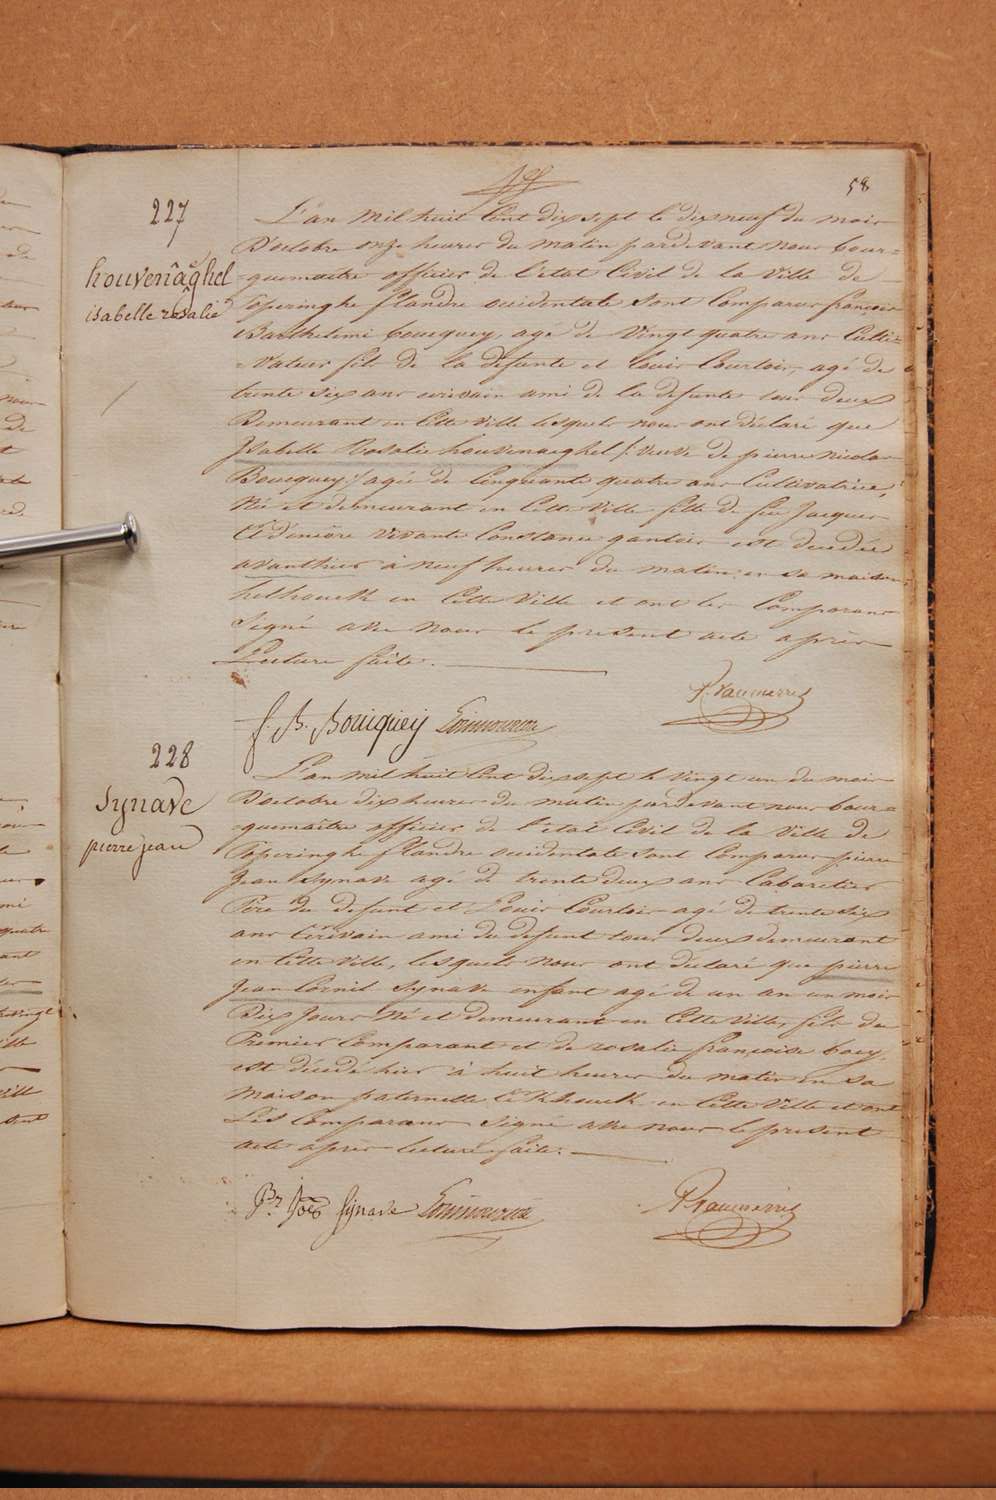 58
227
houvenâghel
isabelle rosalie
L'an mil huit Cent dix sept le dixneuf du mois
D'octobre onze heures du matin pardevant nous bour-
-guemaitre officier de l'etat Civil de la Ville de
Poperinghe flandre occidentale sont Comparus françois
Barthelemi boucquey, agé de Vingt quatre ans Culti-
-Vateur fils de la defunte et louis Courtois, agé de
trente six ans ecrivain ami de la defunte tous deux
Demeurant en Cette Ville lesquels nous ont déclaré que
Isabelle Rosalie houvenaeghel /: veuve de pierre nicolas
Boucquey :/ agée de Cinquante quatre ans Cultivatrice,
Née et demeurant en Cette Ville fille de feu Jacques
Et d'encore vivante Constance gantois est decedée
avanthier à neuf heures du matin en sa maison
helhouck en Cette Ville et ont les Comparans
Signé avec nous le present acte après
Lecture faite.
f. B. Boucquey
228
Synave
pierre jean
L'an mil huit Cent dix sept le vingt un du mois
D'octobre dix heures du matin pardevant nous bour-
-guemaître officier de l'etat Civil de la Ville de
Poperinghe flandre occidentale sont Comparus pierre
Jean Synave agé de trente deux ans Cabaretier
Père du defunt et Louis Courtois agé de trente six
ans Ecrivain ami du defunt tous deux demeurant
en Cette Ville, lesquels nous ont déclaré que pierre
Jean Cornil Synave enfant agé de un an un mois
Dix Jours Né et demeurant en Cette Ville, fils du
Premier Comparant et de rosalie françoise boey,
est décédé hier à huit heures du matin en sa
maison paternelle en Cette Ville et ont
Les Comparans Signé avec nous le present
acte après lecture faite.
Synave